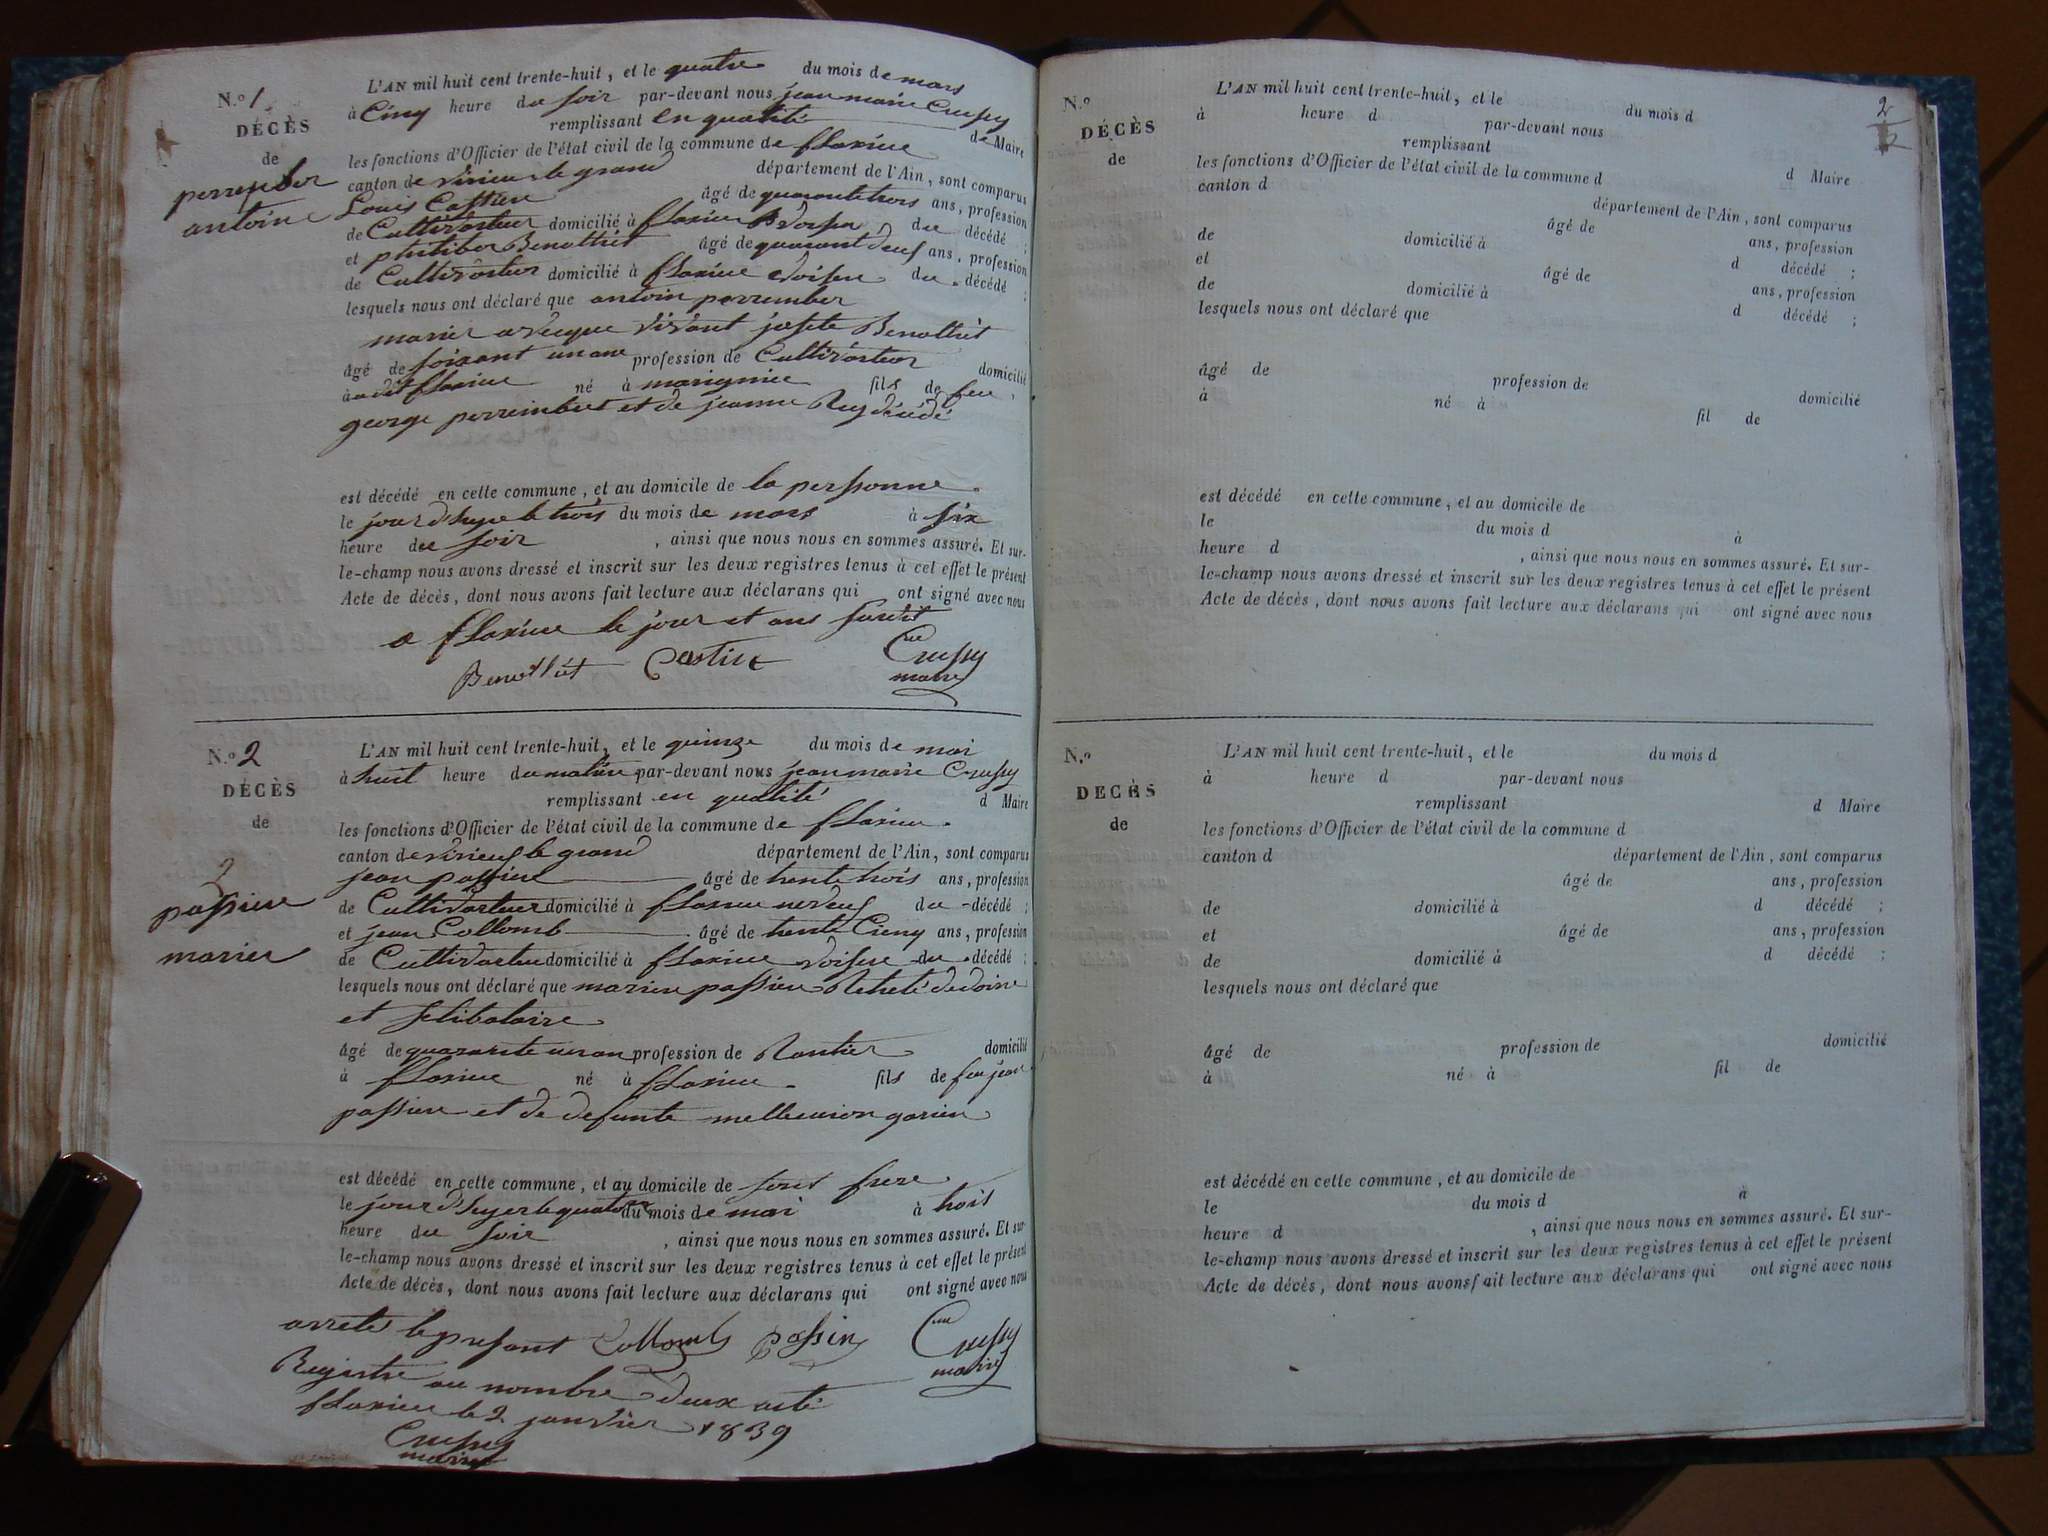 N.o 1
DÉCÈS
de
perrember
antoine
L'AN mil huit cent trente-huit, et le quatre du mois de mars
à Cinq heure du soir par-devant nous jean marie Crussy
remplissant en qualité de Maire
les fonctions d'Officier de l'état civil de la commune de flaxieu
canton de virieu le grand département de l'Ain, sont comparus
Louis Castin âgé de quarante trois ans, profession
de Cultivateur domicilié à flaxieu voisin du décédé ;
et philiber Benottiét âgé de quarant deuf ans, profession
de Cultivateur domicilié à flaxieu voisin du décédé ;
lesquels nous ont déclaré que antoin perrember
marier avecque vivant josete Benottiét
âgé de soixant un ans profession de Cultivateur domicilié
à udit flaxieu né à marignieu fils de feu
george perreimbert et de jeanne Rey décédé
est décédé en cette commune, et au domicile de la perssonne
le jour d'hyer le trois du mois de mars à six
heure du soir , ainsi que nous nous en sommes assuré. Et sur-
le-champ nous avons dressé et inscrit sur les deux registres tenus à cet effet le présent
Acte de décès, dont nous avons fait lecture aux déclarans qui ont signé avec nous
a flaxieu le jour et ans susdit
Benottiét Castin Crussy
maire
N.o 2
DÉCÈS
de
2
passieu
marieu
L'AN mil huit cent trente-huit, et le quinze du mois de mai
à huit heure du matin par-devant nous jean marie Crussy
remplissant en qualité d Maire
les fonctions d'Officier de l'état civil de la commune de flaxieu
canton de virieuf le grand département de l'Ain, sont comparus
jean passieu âgé de trente trois ans, profession
de Cultivateur domicilié à flaxieu neveuf du décédé ;
et jean Collomb âgé de trente Cieng ans, profession
de Cultivateur domicilié à flaxieu voisin du décédé ;
lesquels nous ont déclaré que marieu passieu
et selibataire
âgé de quarante un an profession de Rantier domicilié
à flaxieu né à flaxieu fils de feu jean
passieu et de defunte gorieu
est décédé en cette commune, et au domicile de sont frere
le jour d'hyer le quatorze du mois de mai à trois
heure du soir , ainsi que nous nous en sommes assuré. Et sur-
le-champ nous avons dressé et inscrit sur les deux registres tenus à cet effet le présent
Acte de décès, dont nous avons fait lecture aux déclarans qui ont signé avec nous
arreté le present Collomb passin Crussy
maire
Registre au nombre deux acte
flaxieu le 2 janvier 1839
Crussy
maire
2
N.o
DÉCÈS
de
L'AN mil huit cent trente-huit, et le du mois d
à heure d par-devant nous
remplissant d Maire
les fonctions d'Officier de l'état civil de la commune d
canton d département de l'Ain, sont comparus
âgé de ans, profession
de domicilié à d décédé ;
et âgé de ans, profession
de domicilié à d décédé ;
lesquels nous ont déclaré que
âgé de profession de domicilié
à né à fil de
est décédé en cette commune, et au domicile de
le du mois d à
heure d , ainsi que nous nous en sommes assuré. Et sur-
le-champ nous avons dressé et inscrit sur les deux registres tenus à cet effet le présent
Acte de décès, dont nous avons fait lecture aux déclarans qui ont signé avec nous
N.o
DÉCÈS
de
L'AN mil huit cent trente-huit, et le du mois d
à heure d par-devant nous
remplissant d Maire
les fonctions d'Officier de l'état civil de la commune d
canton d département de l'Ain, sont comparus
âgé de ans, profession
de domicilié à d décédé ;
et âgé de ans, profession
de domicilié à d décédé ;
lesquels nous ont déclaré que
âgé de profession de domicilié
à né à fil de
est décédé en cette commune, et au domicile de
le du mois d à
heure d , ainsi que nous nous en sommes assuré. Et sur-
le-champ nous avons dressé et inscrit sur les deux registres tenus à cet effet le présent
Acte de décès, dont nous avons fait lecture aux déclarans qui ont signé avec nous